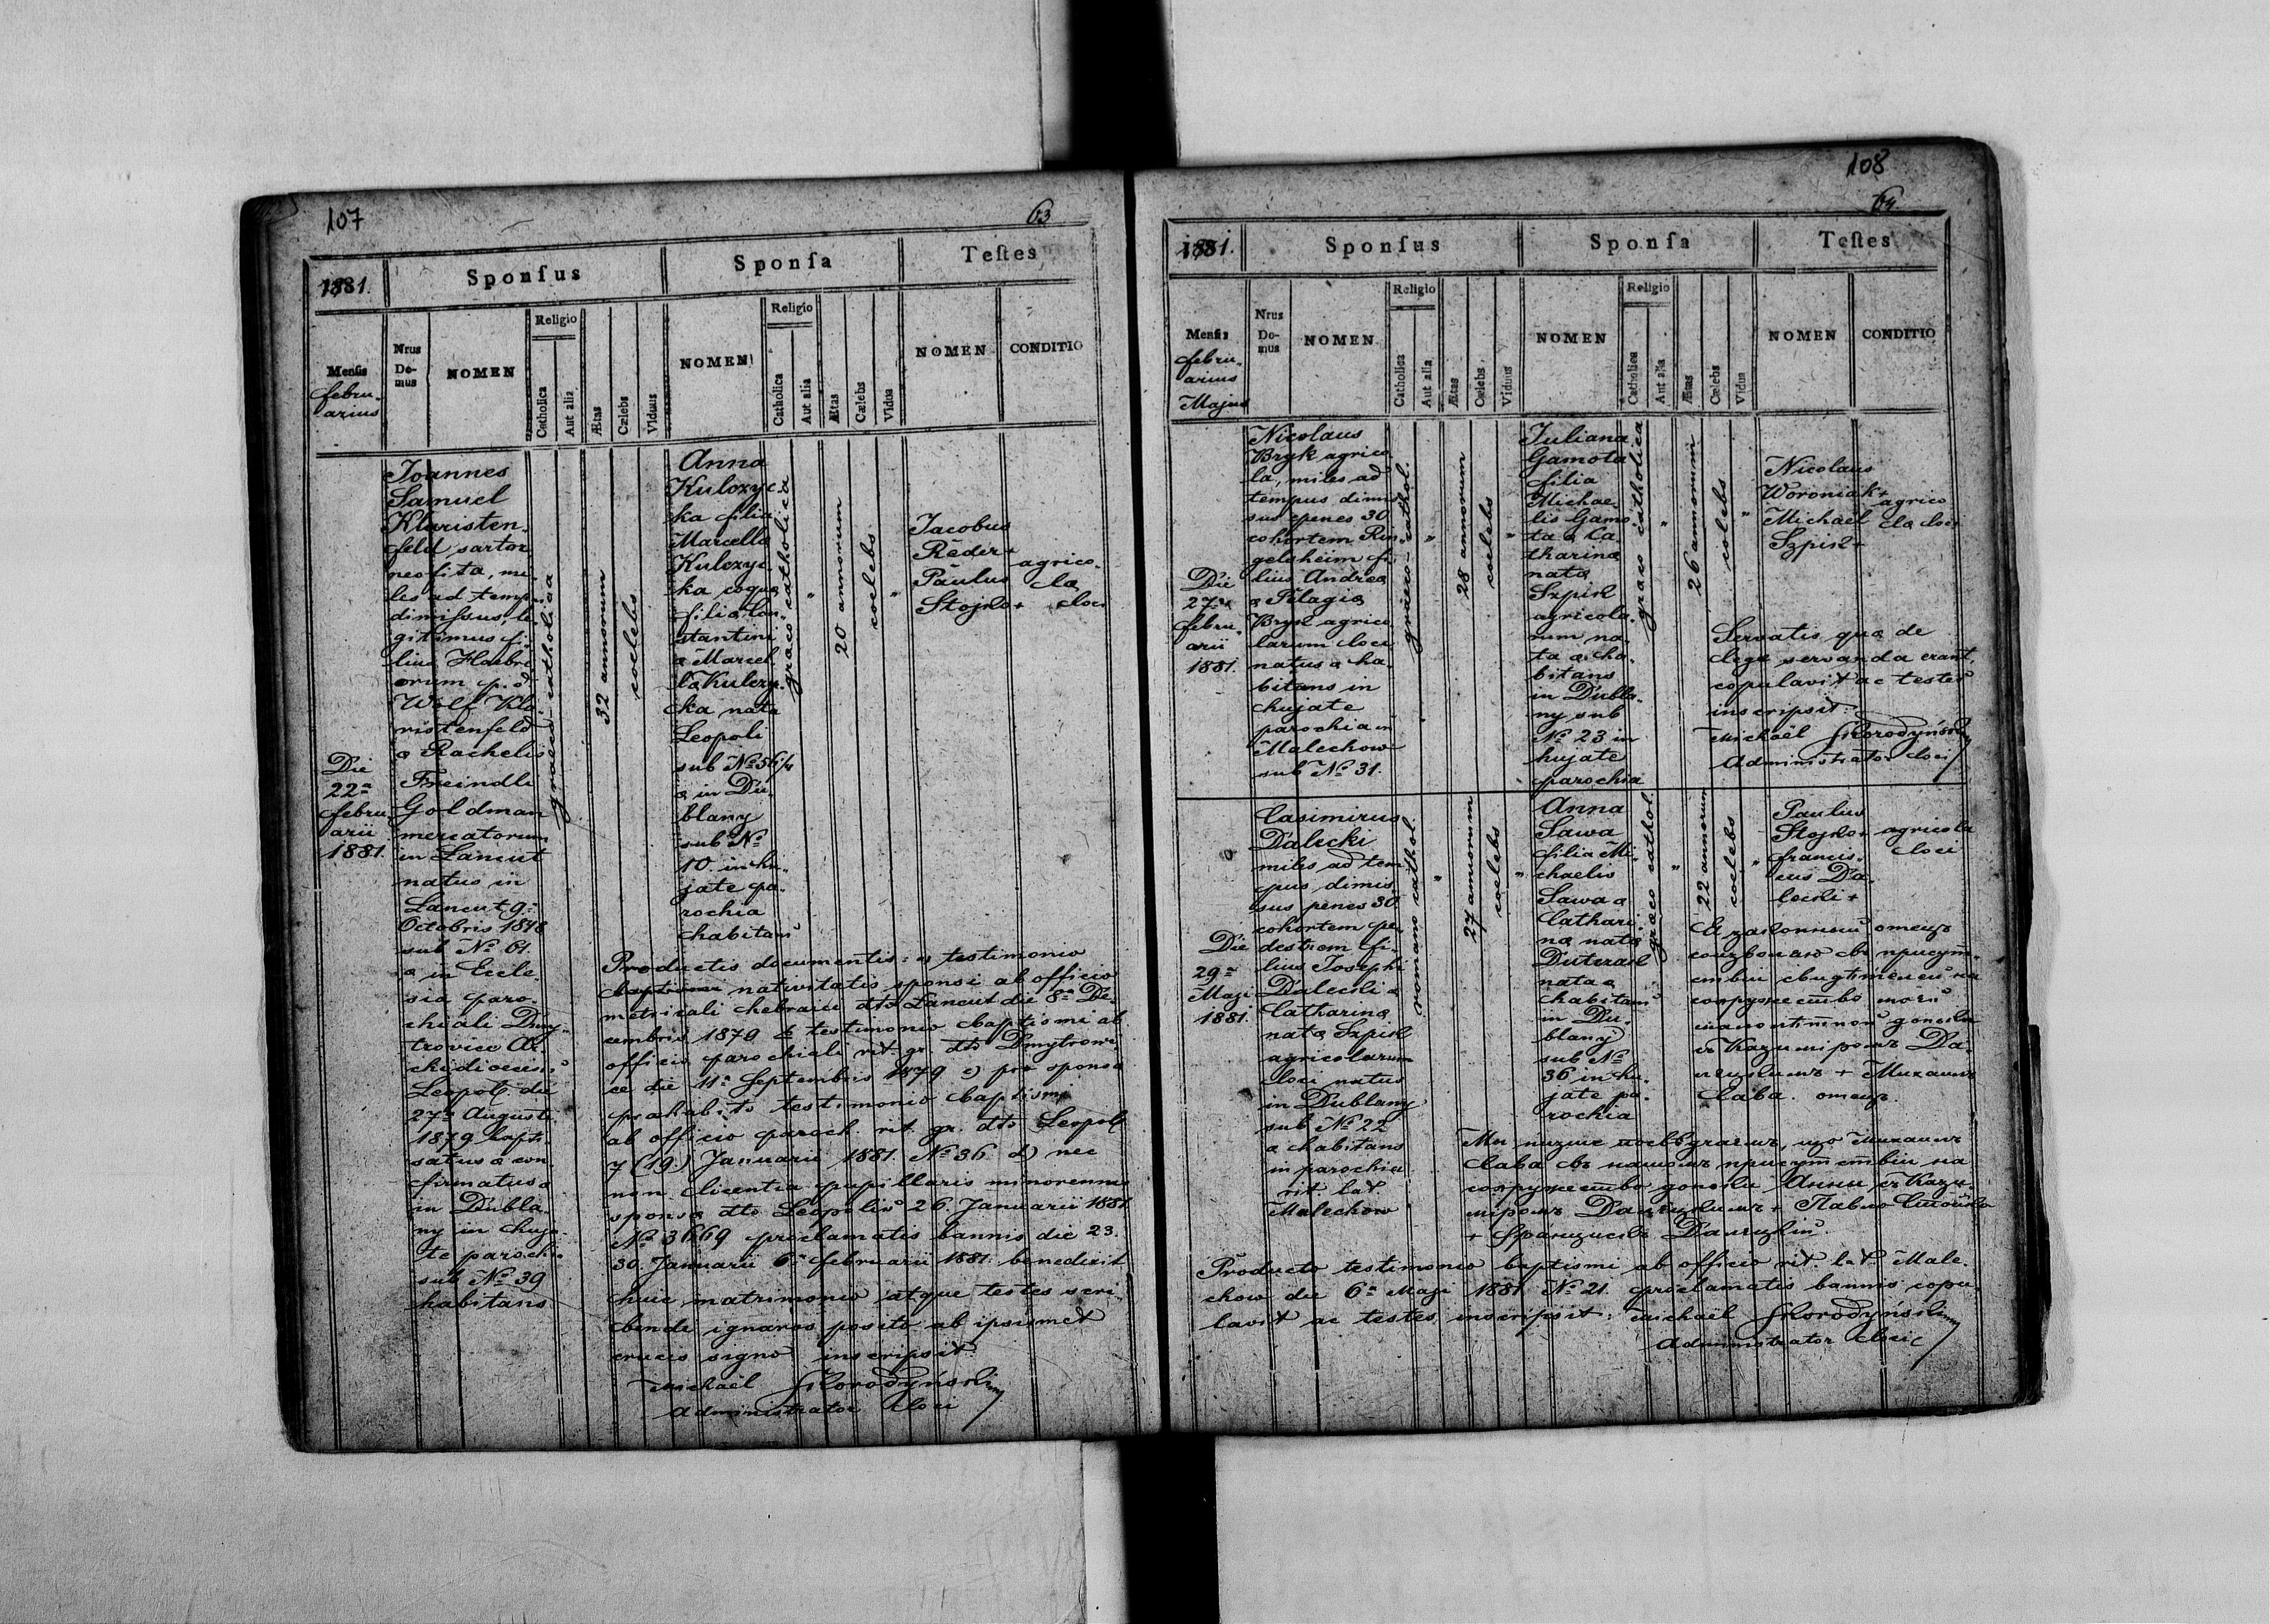 107
63
1881.
Sponſus
Sponſa
Teſtes
Menſis
febru-
arius
Nrus
Do-
mus
NOMEN
Religio
Catholica
Aut alia
Ætas
Cœlebs
Viduus
NOMEN
Religio
Catholica
Aut alia
Ætas
Cœlebs
Vidua
NOMEN
CONDITIO
Die
22a
febru
arii
1881.
Joannes
Samuel
Klaristen-
feld sartor
neofita, mi-
les ad tempus
dimissus, le-
gitimus fi-
lius Haebre
orum p. d.
Wolf Kla-
ristenfeld
a Rachelis
Freindli
Goldman
mercatorum
in Lancut
natus in
Lancut 9a
Octobris 1848
sub No 61
a in Eccle-
sia paro-
chiali Dmy-
trovice Ar-
chidioecesis
Leopol. die
27a Augusti
1879 bapti-
satus a con
firmatus a
in Dubla-
ny in huja-
te parochia
sub No 39
habitans
graeco-catholica
32 annorum
coelebs
Anna
Kulczyc-
ka filia
Marcella
Kulczyc-
ka coqua
filia Con-
stantini
a Marcel-
la Kulczyc-
ka nata
Leopoli
sub No 56/4
a in Du-
blany
sub No
10. in hu-
jate pa-
rochia
habitans
graeco catholica
"
20 annorum
coelebs
"
Jacobus
Reder +
Paulus
Stojko +
agrico-
la
loci
Productis documentis: a) testimonio
nativitatis sponsi ab officio
metricali hebraici dto Lancut die 8a De-
cembris 1879 b) testimonio baptismi ab
officio parochiali rit. gr. dto Dmytrowi-
ce die 11a Septembris 1879 c) pro sponsa
prahabito testimonio baptismi
ab officio paroch. rit. gr. dto Leopol
7 (19.) Januarii 1881. No 36 d) nec
non licentia pupillaris minorennis
sponsa dto Leopolis 26. Januarii 1881
No 3669 proclamatis bannis die 23.
30. Januarii 6a februarii 1881. benedixit
huic matrimonio atque testes scri-
bendi ignaros posito ab ipsismet
crucis signo inscripsit.
Michaël Skorodyński
Administrator loci
108
64.
1881.
Sponſus
Sponſa
Teſtes
Menſis
febru-
arius
Majus
Nrus
Do-
mus
NOMEN
Religio
Catholica
Aut alia
Ætas
Cœlebs
Viduus
NOMEN
Religio
Catholica
Aut alia
Ætas
Cœlebs
Vidua
NOMEN
CONDITIO
Die
27a
febru-
arii
1881.
Nicolaus
Bryk agrico
la, miles ad
tempus dimis
sus penes 30
cohortem Rin-
gelsheim fi-
lius Andrea
a Pelagia
Bryk agrico
larum loci
natus a ha-
bitans in
hujate
parochia in
Malechow
sub No 31.
graeco-cathol.
"
28 annorum
coelebs
"
Juliana
Gamota
filia
Michae-
lis Gamo-
ta a Ca
tharina
nata
Szpik
agricola-
rum na-
ta a ha-
bitans
in Dubla-
ny sub
No 23 in
hujate
parochia
graeco catholica
"
26 annorum
coelebs
"
Nicolaus
Woroniak +
Michaël
Szpik +
agrico
la loci
Servatis qua de
lege servanda erant,
copulavit ac testes
inscripsit:
Michaël Skorodyński
Administrator loci
Die
29a
Maji
1881.
Casimirus
Dalecki
miles ad tem
pus dimis-
sus penes 30
cohortem pe-
destrem fi-
lius Josephi
Dalecki a
Catharina
nata Szpik
agricolarum
loci natus
in Dublany
sub No 22
a habitans
in parochia
rit. lat.
Malechow
romano cathol.
"
27 annorum
coelebs
"
Anna
Sawa
filia Mi-
chaelis
Sawa a
Cathari-
na nata
Duterak
nata a
habitans
in Du-
blany
sub No
36 in hu-
jate pa-
rochia
graeco cathol
"
22 annorum
coelebs
"
Paulus
Stojko +
francis-
cus Da-
lecki +
agricola
loci
Я законный отецъ
созволяю въ присут-
ствіи свидѣтелей на
супружество моей
малолѣтной дочки
съ Казимиромъ Да-
лецкимъ + Михаилъ
Сава. отецъ.
Мы низше посвѣдчаемъ, що Михаилъ
Сава въ нашомъ присутствіи на
супружество дочки Анны съ Кази-
миромъ Далецкимъ + Павло Стойко
+ Францискъ Далецкій.
Producto testimonio baptismi ab officio rit. lat. Male-
chow die 6a Maji 1881 No 21. proclamatis bannis copu-
lavit ac testes inscripsit: Michaël Skorodyński
Administrator loci